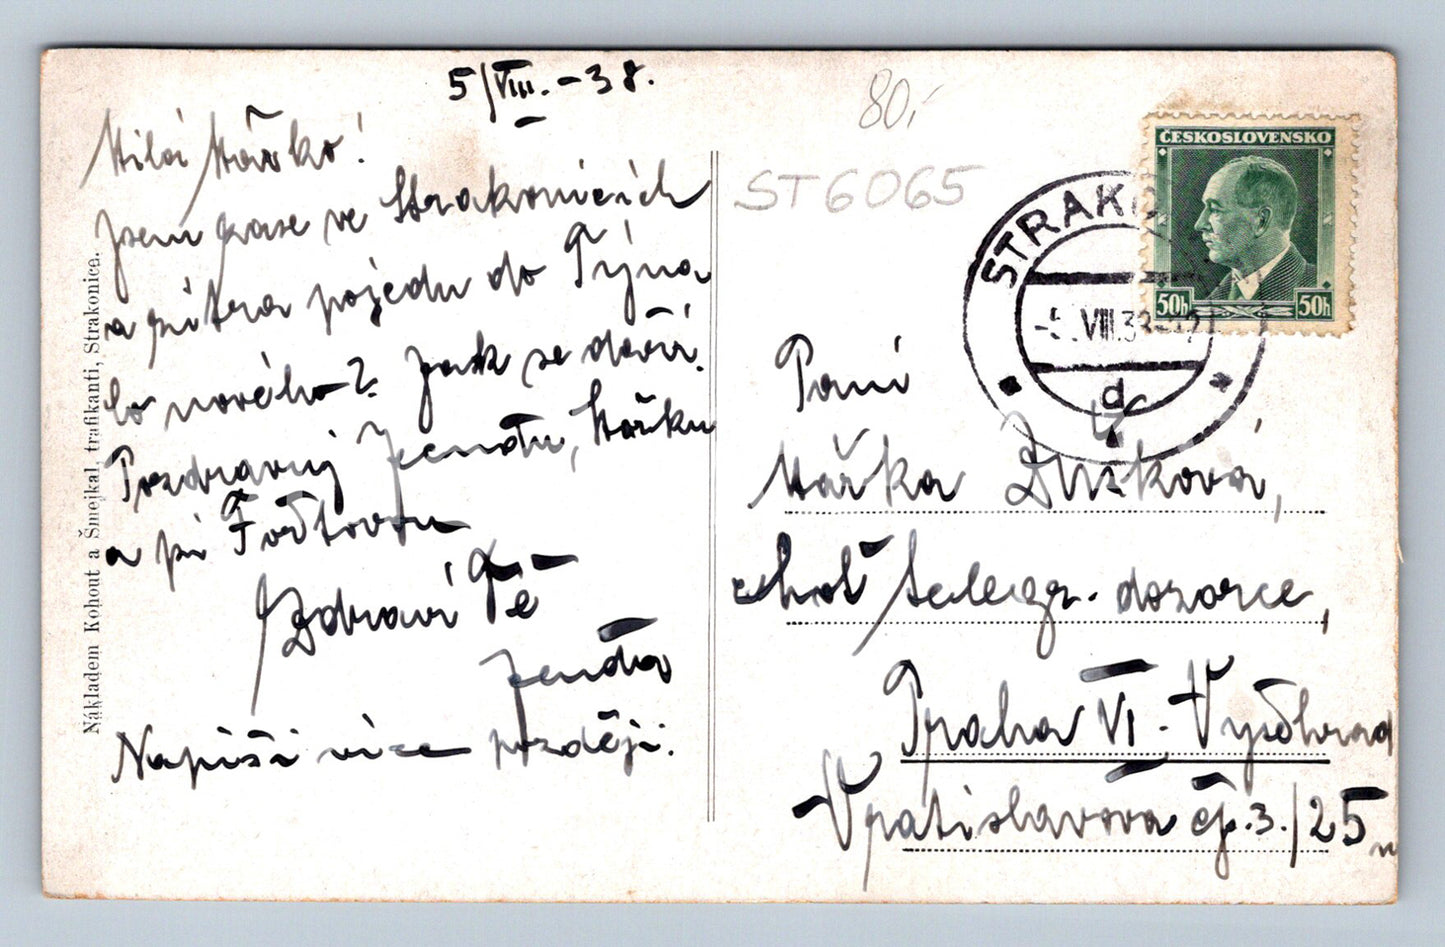 5/VIII. - 38.
Milá Mářko!
Jsem zase ve Strakonicích
a zítra pojedu do Týna
Co nového? Jak se daří.
Pozdravuj Jendu, Mářku
a pí
Zdraví Tě
Jenda
Napíši více později.
Nákladem Kohout a Šmejkal, trafikanti, Strakonice.
80,-
ST6065
ČESKOSLOVENSKO
50h 50h
STRAKO
-5.VIII.38
d
Paní
Mářka
choť telegr. dozorce,
Praha VI - Vyšehrad
Vratislavova čp. 3./25